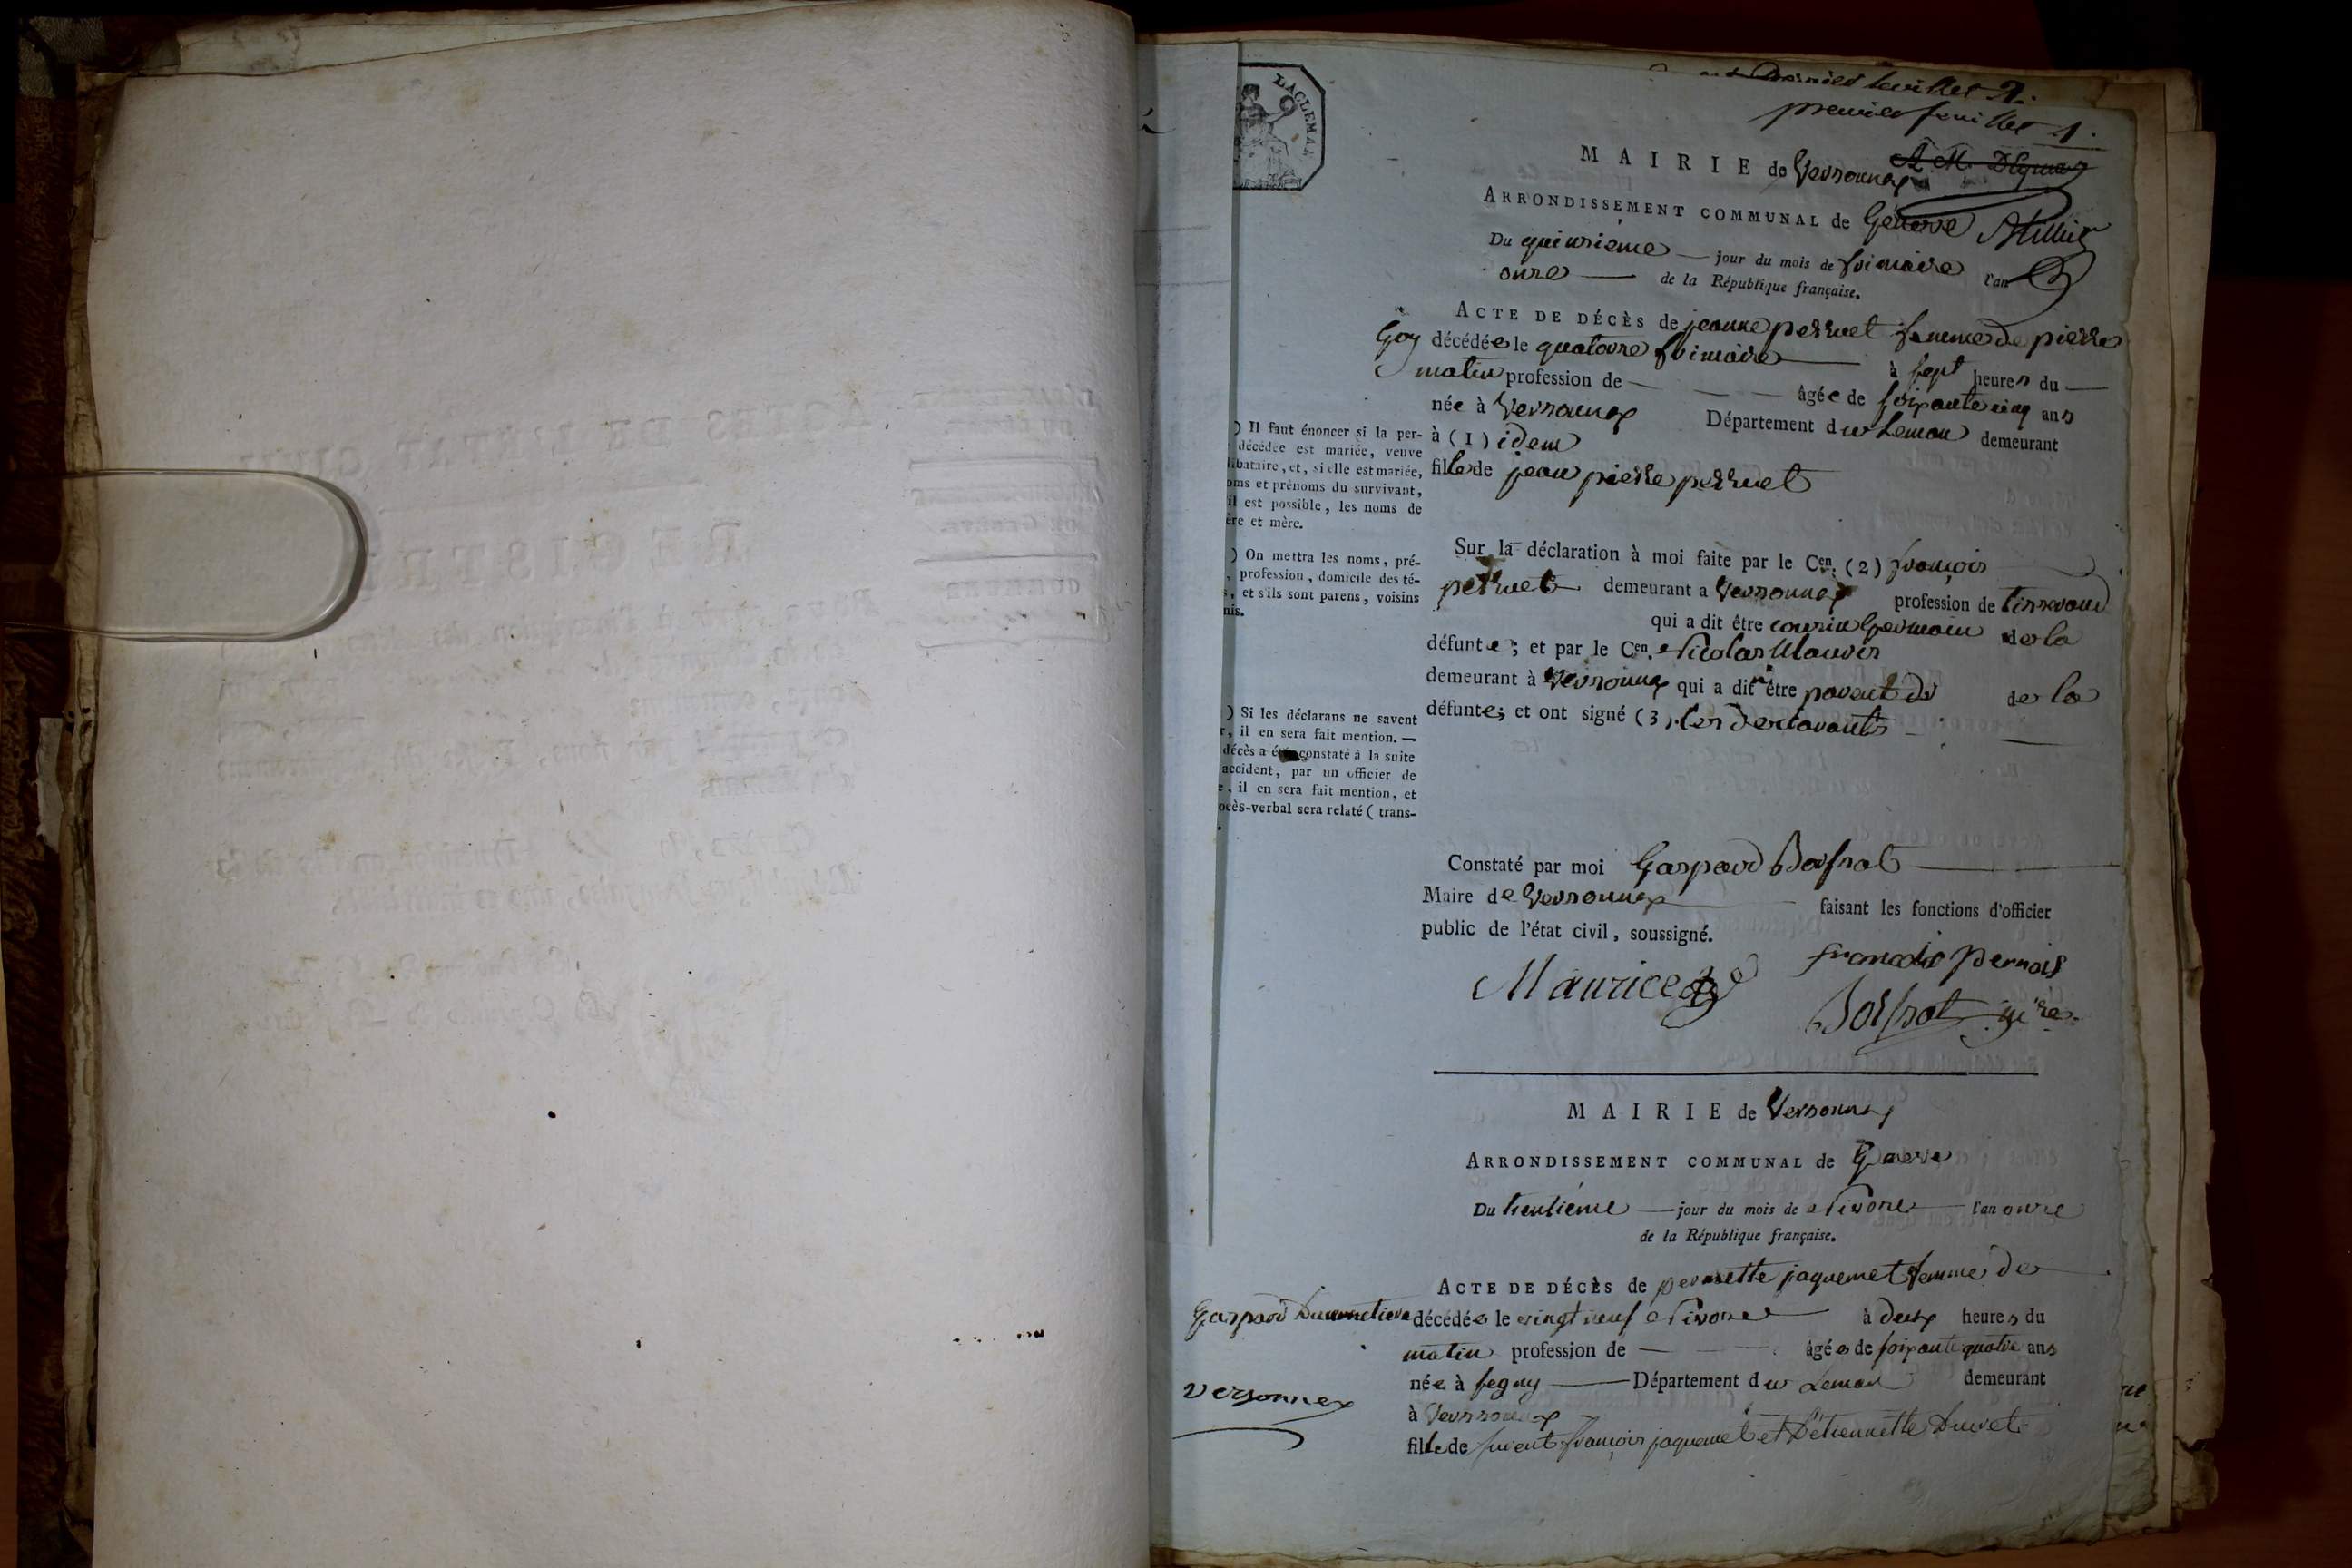 dernier feuillet 2.
premier feuillet 1.
LACLEMAN
MAIRIE de Versonnex
ARRONDISSEMENT COMMUNAL de Genève
Du quinzième — jour du mois de frimaire l'an
onze — de la République française.
ACTE DE DÉCÈS de jeanne perruet femme de pierre
Goy décédée le quatorze frimaire à sept heures du
matin profession de — âgée de soixante cinq ans
née à Versonnex Département du Leman demeurant
à (1) idem
fille de jean pierre perruet
) Il faut énoncer si la per-
décédée est mariée, veuve
libataire, et, si elle est mariée,
oms et prénoms du survivant,
il est possible, les noms de
ère et mère.
Sur la déclaration à moi faite par le Cen. (2) françois
perruet demeurant a Versonnex profession de tisserand
qui a dit être cousin germain de la
défunte; et par le Cen. Nicolas Mauris
demeurant à Versonnex qui a dit être parent de la
défunte; et ont signé (3) les declarants
) On mettra les noms, pré-
, profession, domicile des té-
s, et s'ils sont parens, voisins
mis.
) Si les déclarans ne savent
r, il en sera fait mention. —
décès a été constaté à la suite
accident, par un officier de
e, il en sera fait mention, et
ocès-verbal sera relaté ( trans-
Constaté par moi Gaspard Boisnot
Maire de Versonnex faisant les fonctions d'officier
public de l'état civil, soussigné.
françois Pernais
Maurice
Boisnot
MAIRIE de Versonnex
ARRONDISSEMENT COMMUNAL de Geneve
Du trentième — jour du mois de Nivose l'an onze
de la République française.
ACTE DE DÉCÈS de pernette jaquemet femme de
Gaspard Ducimetiere décédée le vingt neuf Nivose à deux heures du
matin profession de — âgée de soixante quatre ans
née à segny — Département du Leman demeurant
Versonnex
à Versonnex
fille de françois jaquemet et d'étiennette Duret